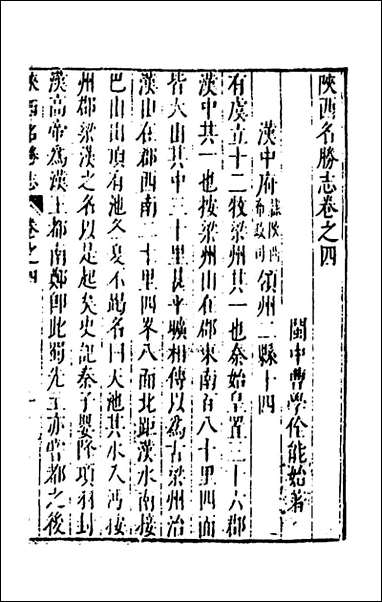 陝西名勝志卷之四
閩中曹學佺能始著
漢中府隸陝西布政司領州二縣十四
有虞立十二牧梁州其一也秦始皇置三十六郡
漢中共一也按梁州山在郡東南百八十里四面
皆大山其中三十里甚平曠相傳以爲古梁州治
漢山在郡西南二十里四峯八面北距漢水南接
巴山山頂有池冬夏不竭名曰大池其水入沔按
州郡梁漢之名以是起矣史記秦子嬰降項羽封
漢高帝爲漢王都南鄭卽此蜀先主亦嘗都之後
陝西名勝志 卷之四 一